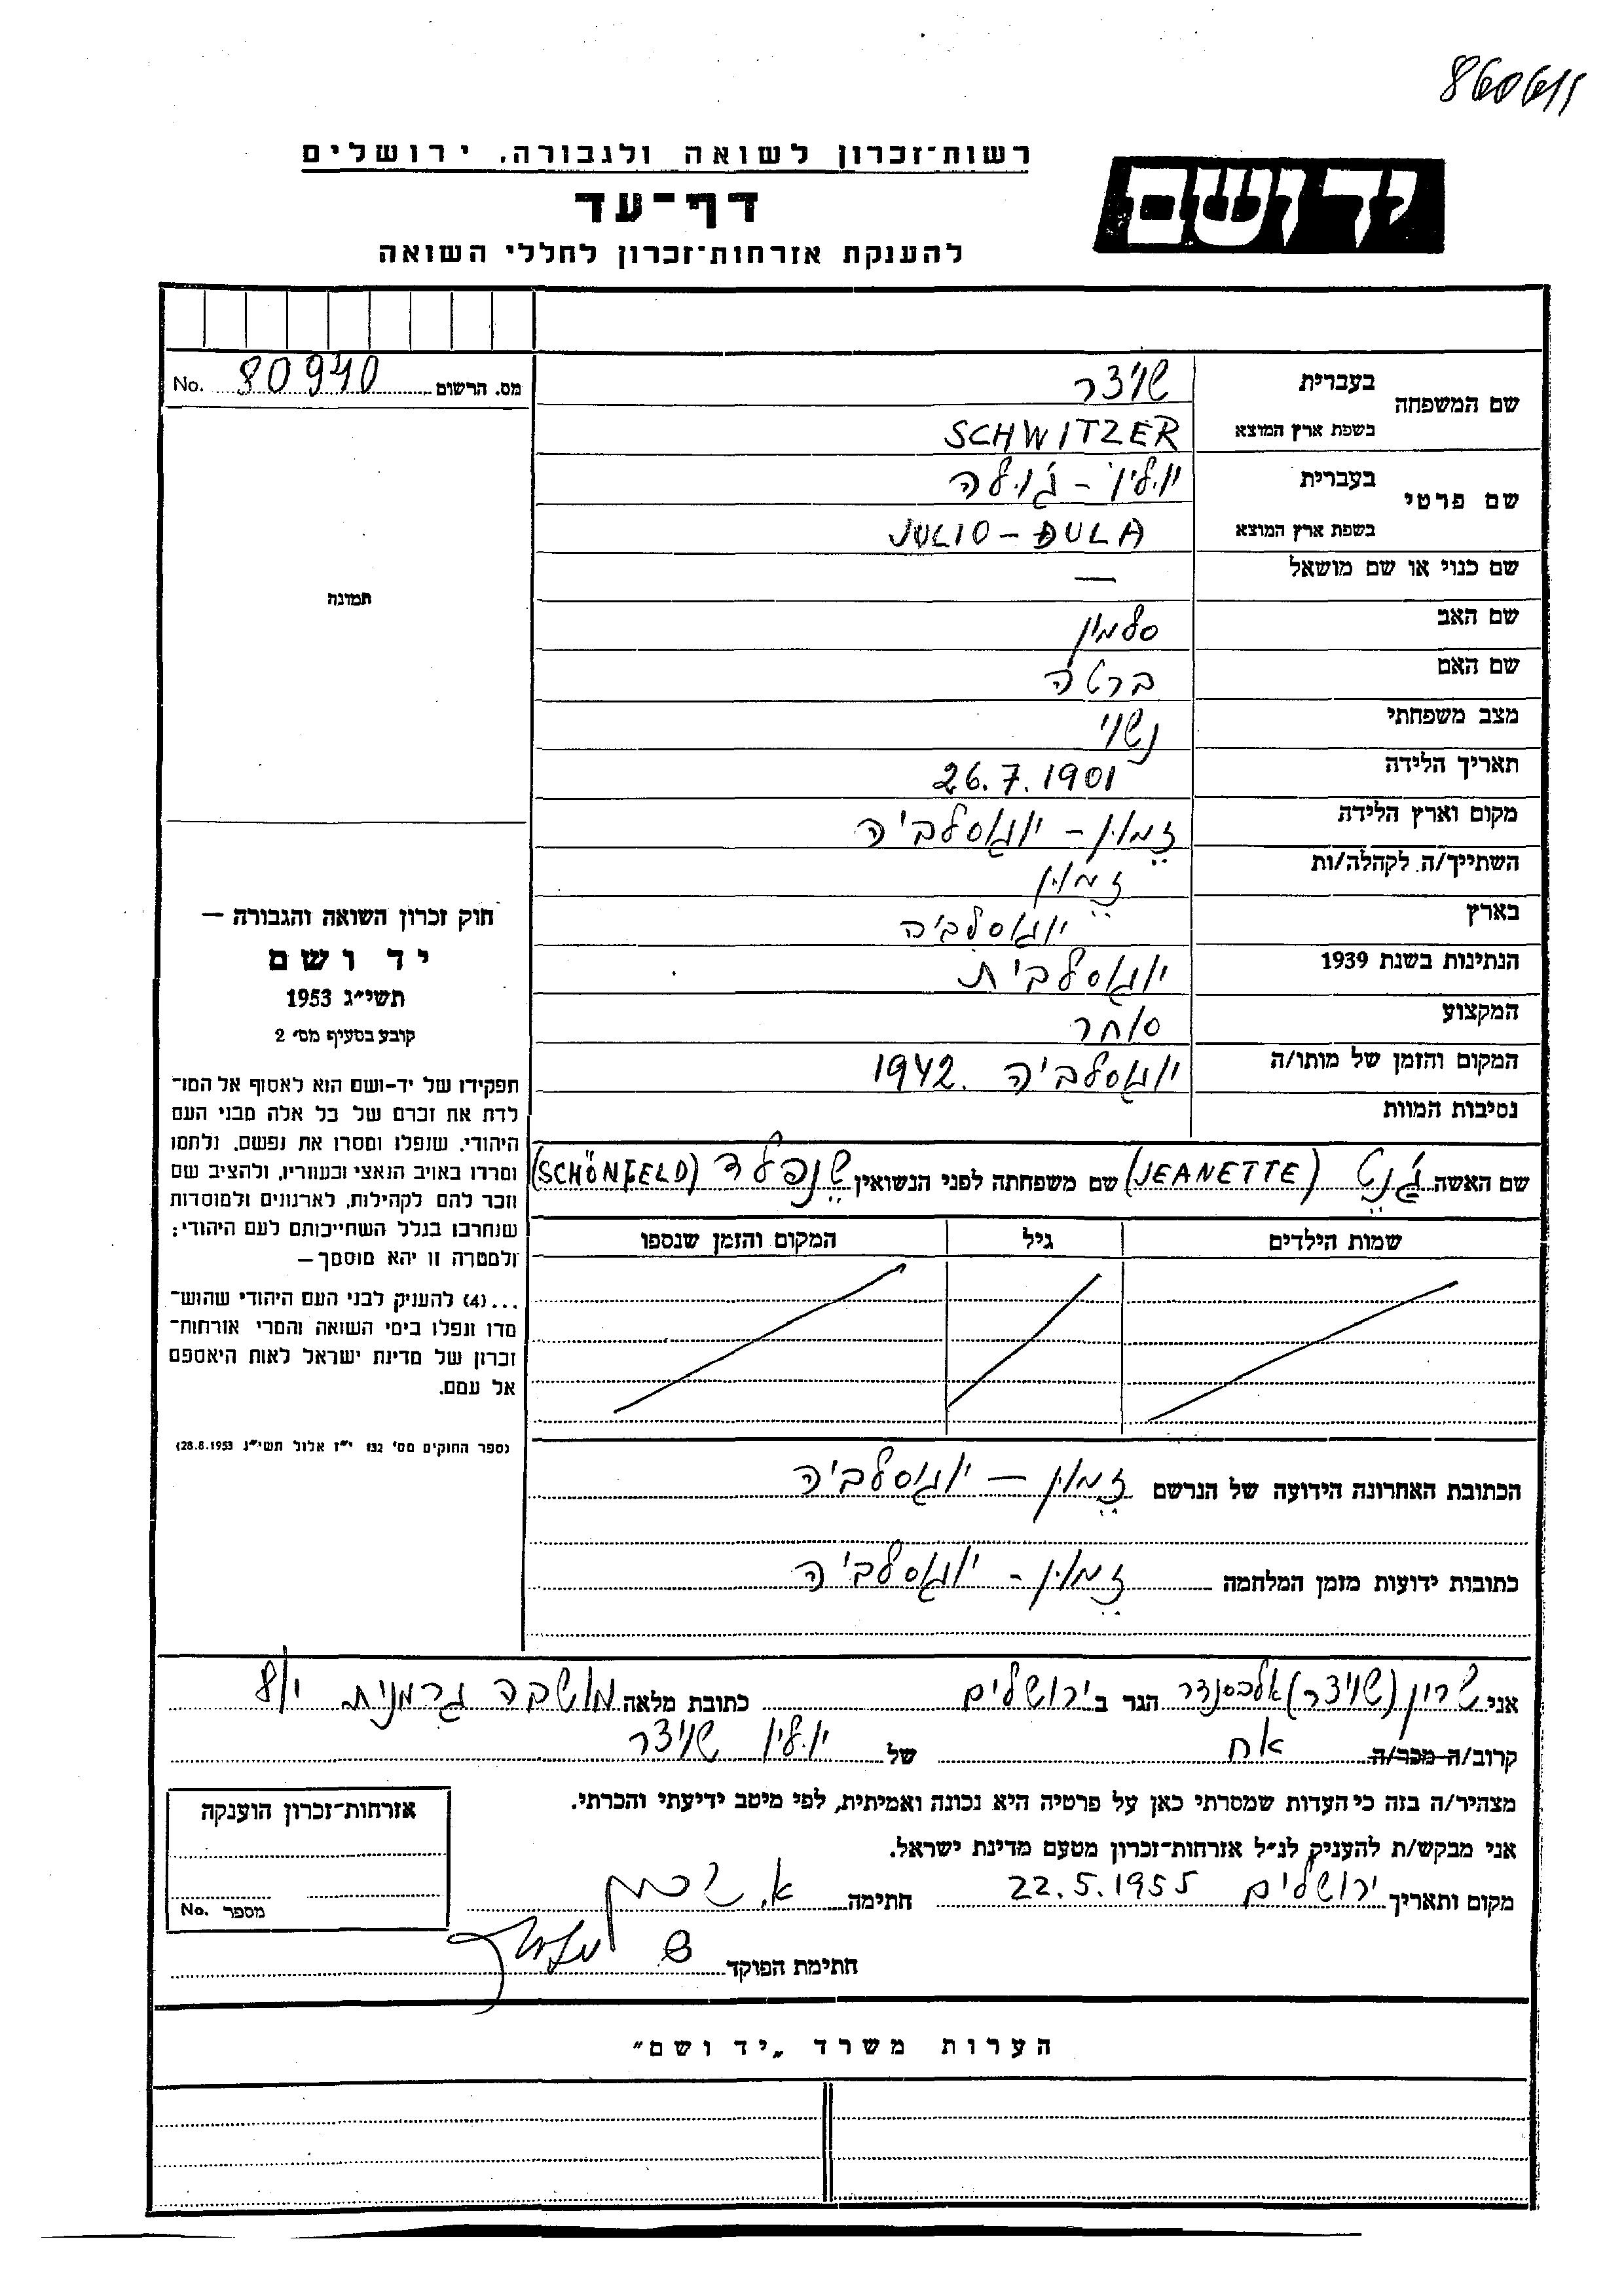 860611
רשות־זכרון לשואה ולגבורה, ירושלים
יד ושם
דף־עד
להענקת אזרחות־זכרון לחללי השואה
מס. הרשום 80940 No.
תמונה
חוק זכרון השואה והגבורה —
יד ושם
תשי״ג 1953
קובע בסעיף מס׳ 2
תפקידו של יד-ושם הוא לאסוף אל המו־
לדת את זכרם של כל אלה מבני העם
היהודי, שנפלו ומסרו את נפשם, נלחמו
ומרדו באויב הנאצי ובעוזריו, ולהציב שם
וזכר להם לקהילות, לארגונים ולמוסדות
שנחרבו בגלל השתייכותם לעם היהודי;
ולמטרה זו יהא מוסמך—
...(4) להעניק לבני העם היהודי שהוש־
מדו ונפלו בימי השואה והמרי אזרחות־
זכרון של מדינת ישראל לאות היאספם
אל עמם.
(ספר החוקים מס׳ 132 י״ז אלול תשי״ג 28.8.1953)
שם המשפחה בעברית שויצר
בשפת ארץ המוצא SCHWITZER
שם פרטי בעברית יוליו - ג'ולה
בשפת ארץ המוצא JULIO - ĐULA
שם כנוי או שם מושאל —
שם האב סלמון
שם האם ברטה
מצב משפחתי נשוי
תאריך הלידה 26.7.1901
מקום וארץ הלידה זמון - יוגוסלביה
השתייך/ה לקהלה/ות זמון
בארץ יוגוסלביה
הנתינות בשנת 1939 יוגוסלבית
המקצוע סוחר
המקום והזמן של מותו/ה יוגוסלביה. 1942
נסיבות המוות
שם האשה ג'נט (JEANETTE) שם משפחתה לפני הנשואין שנפלד (SCHÖNFELD)
שמות הילדים גיל המקום והזמן שנספו
הכתובת האחרונה הידועה של הנרשם זמון — יוגוסלביה
כתובות ידועות מזמן המלחמה זמון - יוגוסלביה
אני שרון (שויצר) אלכסנדר הגר ב ירושלים כתובת מלאה מושבה גרמנית 8/י
קרוב/ה מכר/ה אח של יוליו שויצר
מצהיר/ה בזה כי העדות שמסרתי כאן על פרטיה היא נכונה ואמיתית, לפי מיטב ידיעתי והכרתי.
אני מבקש/ת להעניק לנ״ל אזרחות־זכרון מטעם מדינת ישראל.
מקום ותאריך ירושלים 22.5.1955 חתימה א. שרון
חתימת הפוקד
אזרחות־זכרון הוענקה
מספר No.
הערות משרד „יד ושם״